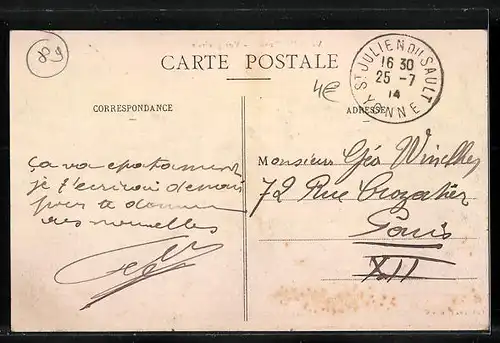 89
CARTE POSTALE
4€
ST JULIEN DU SAULT
16 30
25 - 7
14
YONNE
CORRESPONDANCE
ADRESSE
ça va epatament
je t'ecrirai demain
pour te donner
des nouvelles
Monsieur Géo
72 Rue Crozatier
Paris
XII